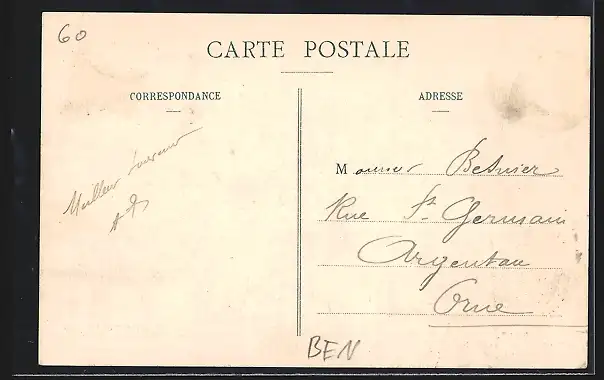 60
CARTE POSTALE
CORRESPONDANCE
ADRESSE
Meilleur souvenir
Monsieur Besnier
Rue St Germain
Argentan
Orne
BEN